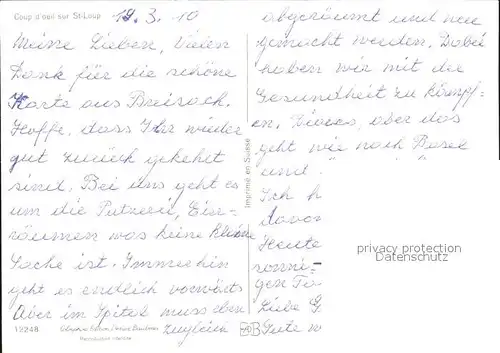 Coup d'oeil sur St-Loup
19.3.10
Meine Lieben, Vielen
Dank für die schöne
Karte aus
Hoffe, dass Ihr wieder
gut zurück gekehrt
sind. Bei uns geht es
um die Putzerei, Ein-
räumen was keine kleine
Sache ist. Immerhin
geht es endlich vorwärts
Aber im Spital muss eben
zugleich
12248
Reproduction interdite
Imprimé en Suisse
abgeräumt und neu
gemacht werden. Dabei
haben wir mit der
Gesundheit zu kämpf-
en. aber das
geht wie nach Basel
und
Ich h
davon
Heute
sonni-
gen Ta
Liebe G
Gute w
privacy protection
Datenschutz